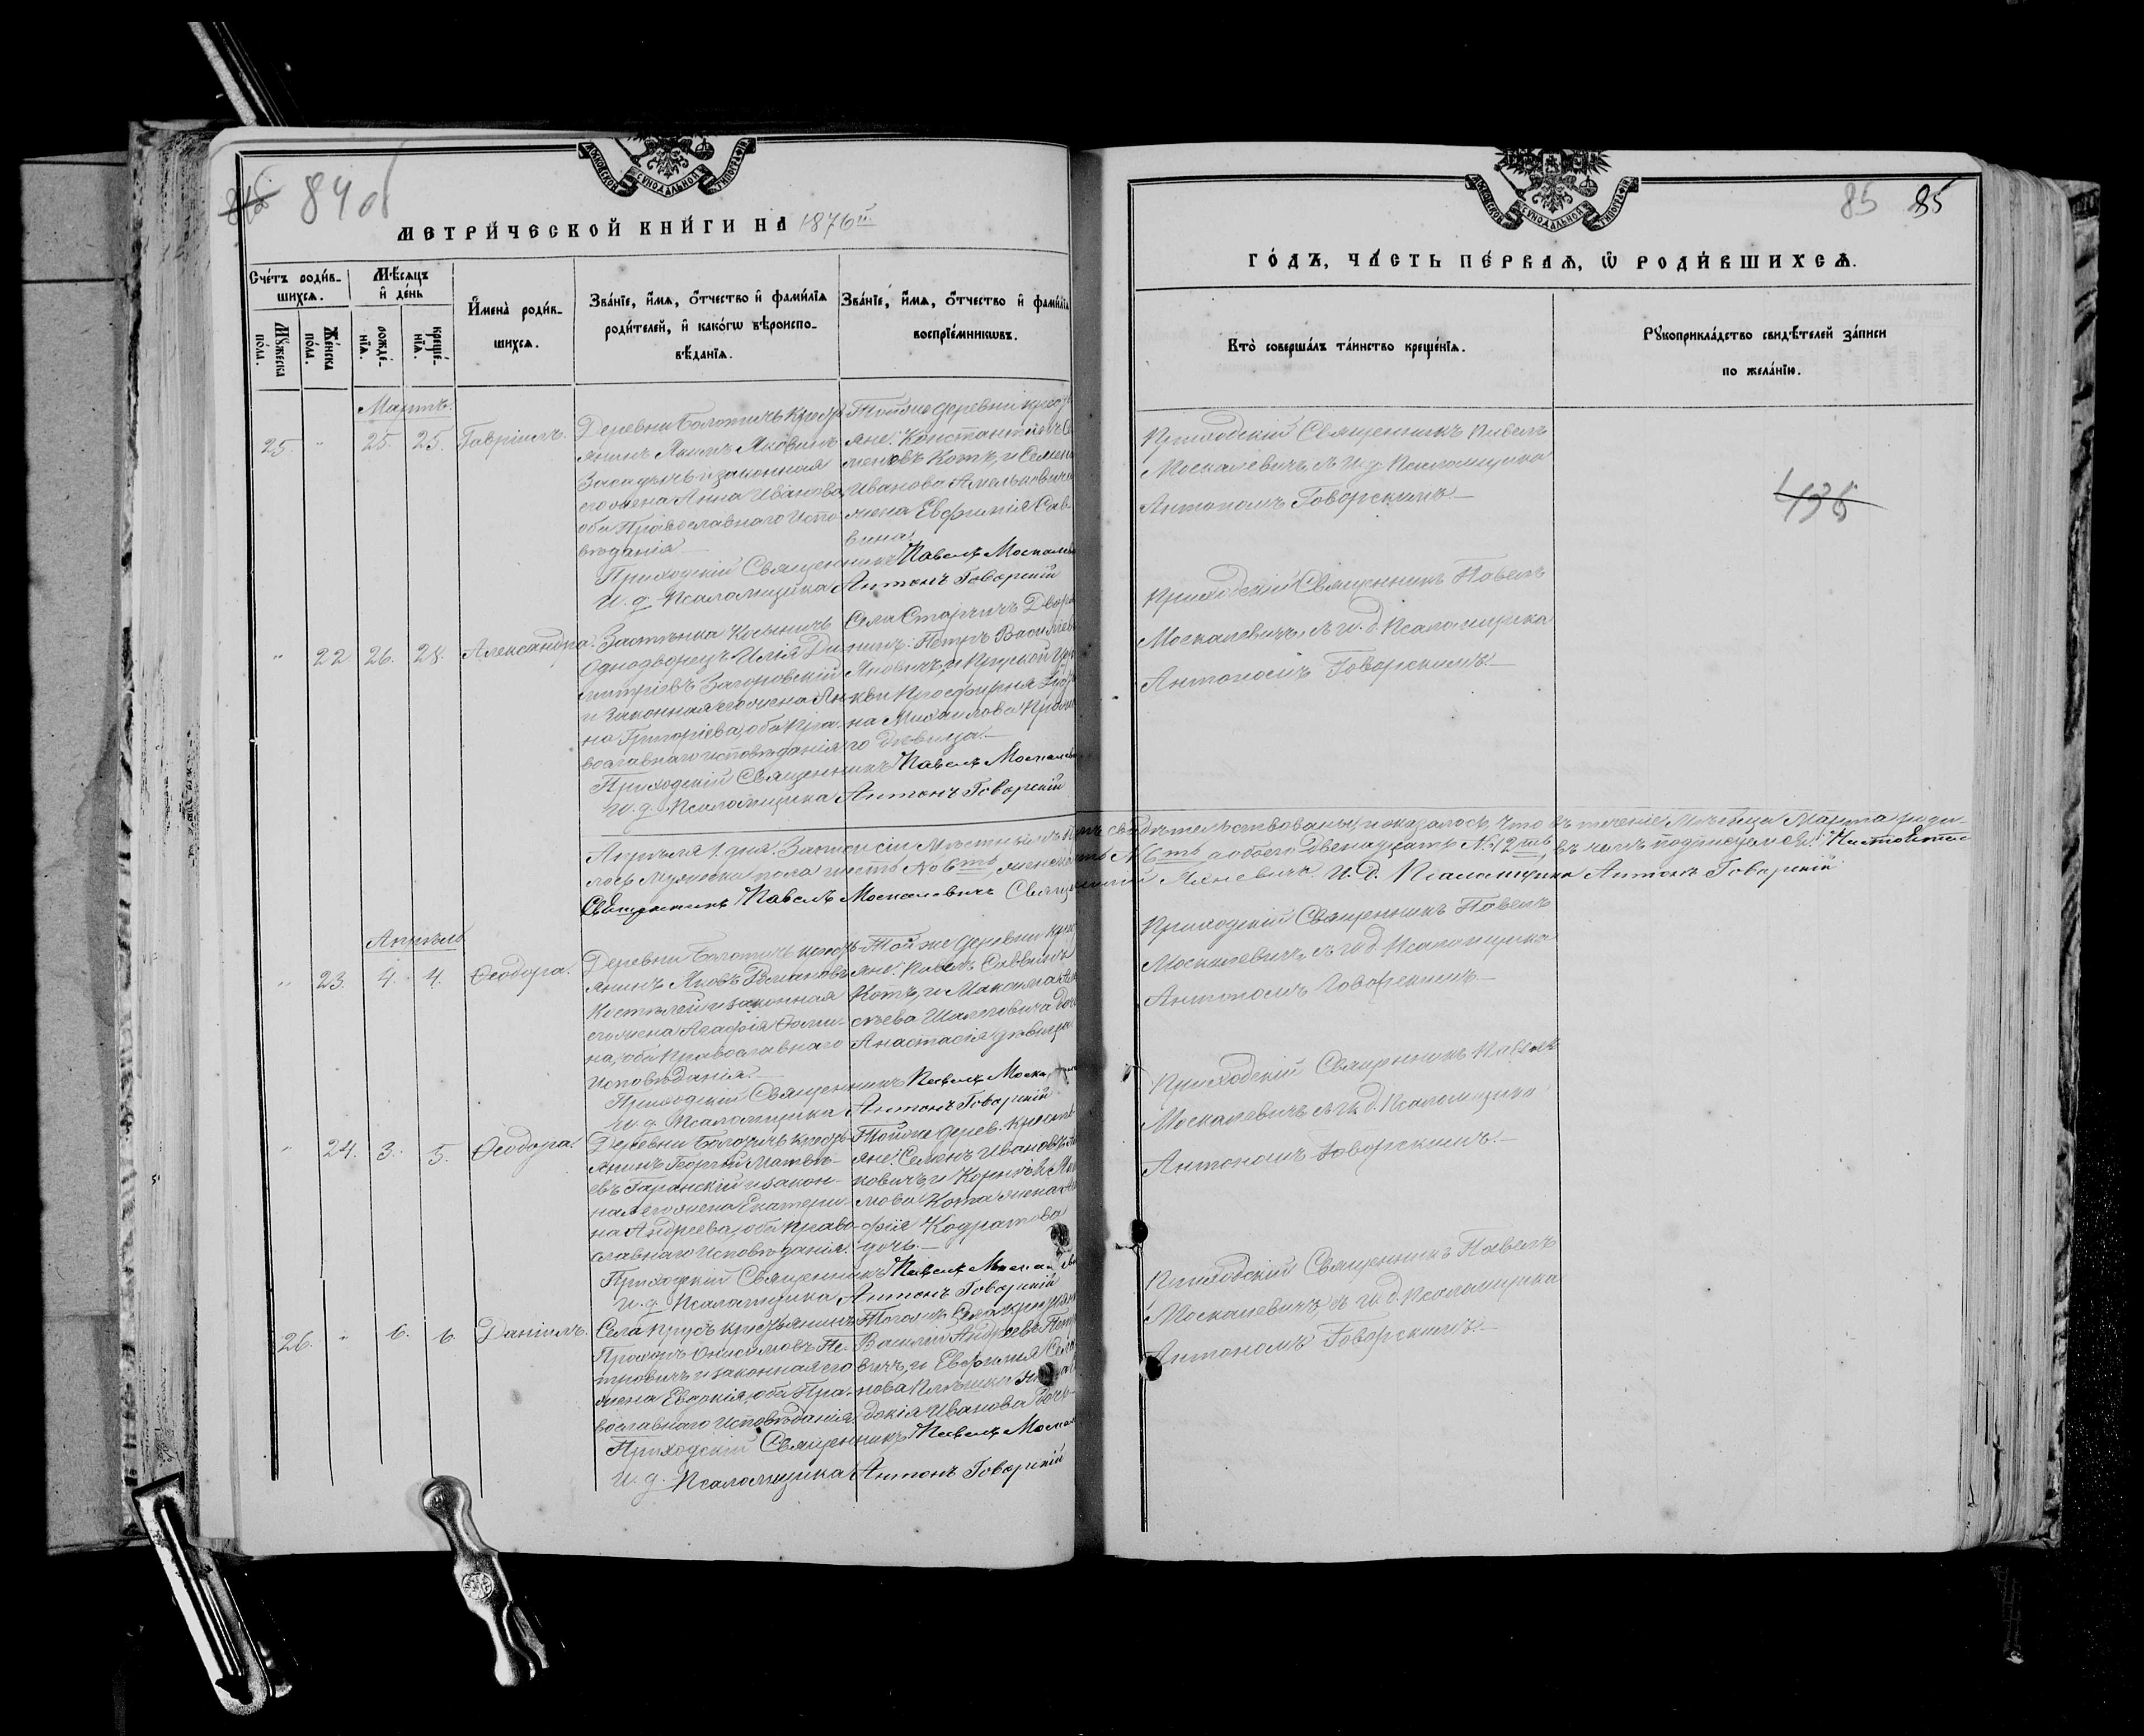 84об
МЕТРИ́ЧЕСКОЙ КНИ́ГИ НА 1876й.
Сче́тъ роди́в-
шихся.
Мѣ́сяцъ
и҆ де́нь
И҆мена̀ роди́в-
шихся.
Зва́нїе, и҆́мя, ѻ҆́тчество и҆ фами́лїя
роди́телей, и҆ како́гѡ вѣроиспо-
вѣ́данїя.
Зва́нїе, и҆́мя, ѻ҆́тчество и҆ фами́лїя
воспрїе́мникѡвъ.
Мꙋ́жеска
по́ла.
Же́нска
по́ла.
рожде́-
нїя.
креще́-
нїя.
Мартъ.
25. " 25. 25. Гавріилъ.
Деревни Болотичъ крестъ-
янинъ Якимъ Яковлевъ
законная
его жена Анна Иванова,
оба Православнаго Испо-
вѣданія
Тойже деревни крестья
яне: Константинъ Се
меновъ Котъ, и Семена
Иванова Амельковича
жена Евфимія Сав
вина.
Приходскій Священникъ Павелъ Москалевичъ
И. д. Псаломщика Антонъ Говорскій
" 22 26. 28. Александра.
Застѣнка
Однодворецъ Илія Ди
митріевъ Загоровскій
и законная его жена Ян
на Григоріева, оба Пра
вославнаго исповѣданія
Села Старчичъ Дворя
нинъ: Петръ Василіевъ
Яновичъ, и Пруской Цер
кви Просфирня
на Михаилова
го Дѣвица.
Приходскій Священникъ Павелъ Москалевичъ
И. д. Псаломщика Антонъ Говорскій
Апрѣля 1. дня. Записи сіи Мѣстнымъ свидѣтельствованы, и оказалось, что въ теченіе Мѣсяца Марта роди-
лось Мужеска пола шесть № 6ть, женска № 6ть а обоего Двѣнадцать № 12ть, въ чемъ подписуемся: Настоятель
Священникъ Павелъ Москалевичъ Священникъ И. Д. Псаломщика Антонъ Говорскій
Апрѣль
" 23. 4. 4. Ѳеодора.
Деревни Болотичъ крестъ-
янинъ Яковъ
и законная
его жена Агафія Ѳоми-
на, оба Православнаго
Исповѣданія.
Той же деревни кресть
яне: Павелъ Саввинъ
Котъ, и Максима
сѣева Шалговича дочь
Анастасія дѣвица
Приходскій Священникъ Павелъ Москалевичъ
И. д. Псаломщика Антонъ Говорскій
" 24. 3. 5. Ѳеодора.
Деревни Болотичъ крестъ-
янинъ Георгій Матвѣ-
евъ Таранскій и закон-
ная его жена Екатери-
на Андреева, оба Право-
славнаго Исповѣданія.
Тойже дерев. кресть
яне: Семенъ Ивановъ
ковичъ, и
мова Кота жена
фія Кодратова
дочь.
Приходскій Священникъ Павелъ Москалевичъ
И. д. Псаломщика Антонъ Говорскій
26. " 6. 6. Даніилъ.
Села Прусъ крестьянинъ
Прохоръ Онисимовъ Пе-
тровичъ и законная его
жена Евдокія, оба Пра-
вославнаго Исповѣданія.
Тогоже Села крестьян
Василій Андреевъ Пет
вичъ, и Евфимія
нова
докія Иванова дочь
Приходскій Священникъ Павелъ Москалевичъ
И. д. Псаломщика Антонъ Говорскій
85 85
ГО́ДЪ, ЧА́СТЬ ПЕ́РВАЯ, Ѡ҆ РОДИ́ВШИХСЯ.
Кто̀ соверша́лъ та́инство креще́нїя.
Рꙋкоприкла́дство свидѣ́телей за́писи
по жела́нїю.
Приходскій Священникъ Павелъ
Москалевичъ съ И. д. Псаломщика
Антономъ Говорскимъ.
Приходскій Священникъ Павелъ
Москалевичъ, съ И. д. Псаломщика
Антономъ Говорскимъ.
Приходскій Священникъ Павелъ
Москалевичъ, съ И. д. Псаломщика
Антономъ Говорскимъ.
Приходскій Священникъ Павелъ
Москалевичъ съ И. д. Псаломщика
Антономъ Говорскимъ.
Приходскій Священникъ Павелъ
Москалевичъ съ И. д. Псаломщика
Антономъ Говорскимъ.